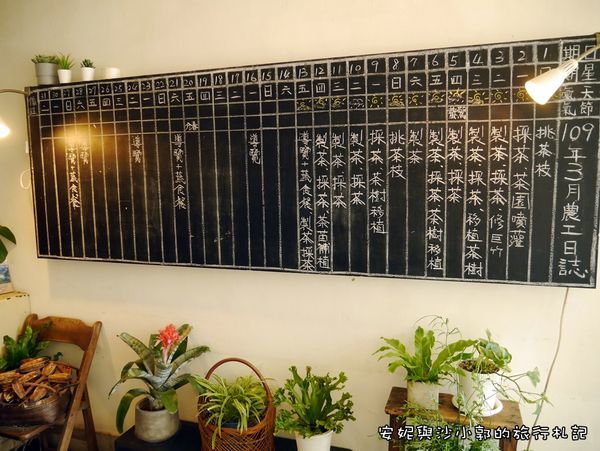 日期
星期
天氣
節氣
109年3月農工日誌
1 日 挑茶枝
2 一 採茶 茶園噴灌
3 二 製茶 採茶 修巨竹
4 三 製茶 採茶 移植茶樹
5 四 驚蟄 製茶 採茶
6 五 製茶 採茶 茶樹移植
7 六 製茶
8 日 挑茶枝
9 一 採茶 茶樹移植
10 二 製茶
11 三 製茶 採茶
12 四 製茶 採茶 茶苗補植
13 五 導覽+蔬食餐、製茶 採茶
14 六
15 日
16 一 導覽
17 二
18 三
19 四
20 五 春分
21 六 導覽+蔬食餐
22 日
23 一
24 二 導覽
25 三
26 四
27 五
28 六 導覽
29 日 導覽+蔬食餐
30 一
31 二
安妮與沙小郭的旅行札記